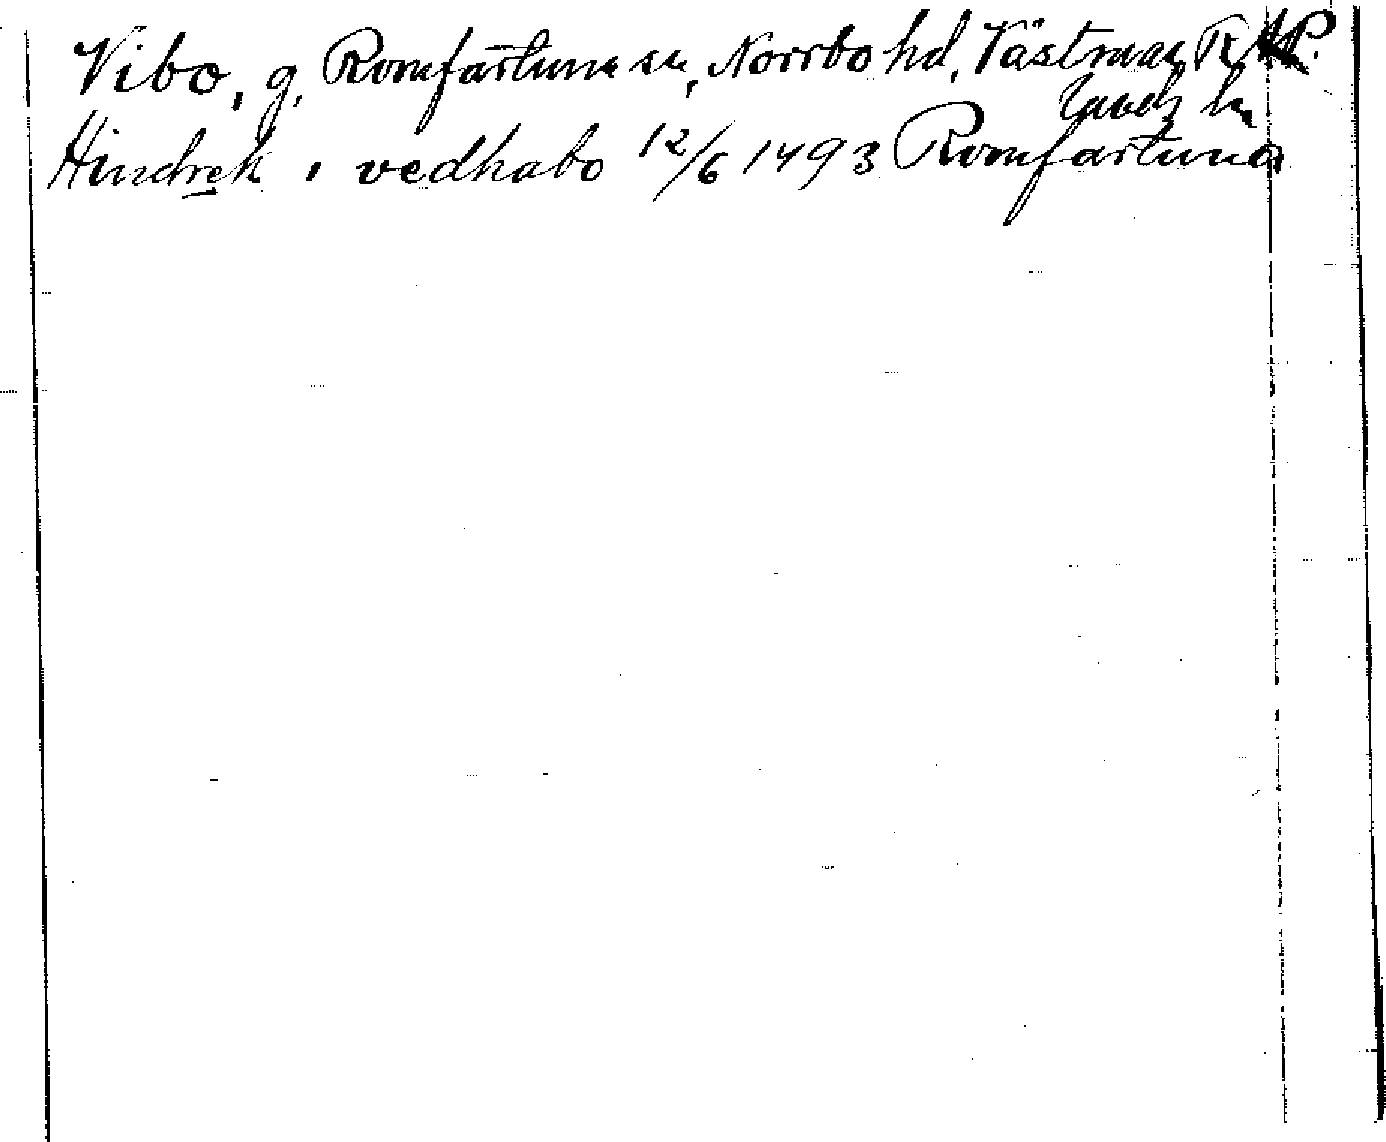 Vibo, g, Romfartuna sn, Norrbo hd, Västman RAP.
Hindrek i vedhabo 12/6 1493 Romfartuna